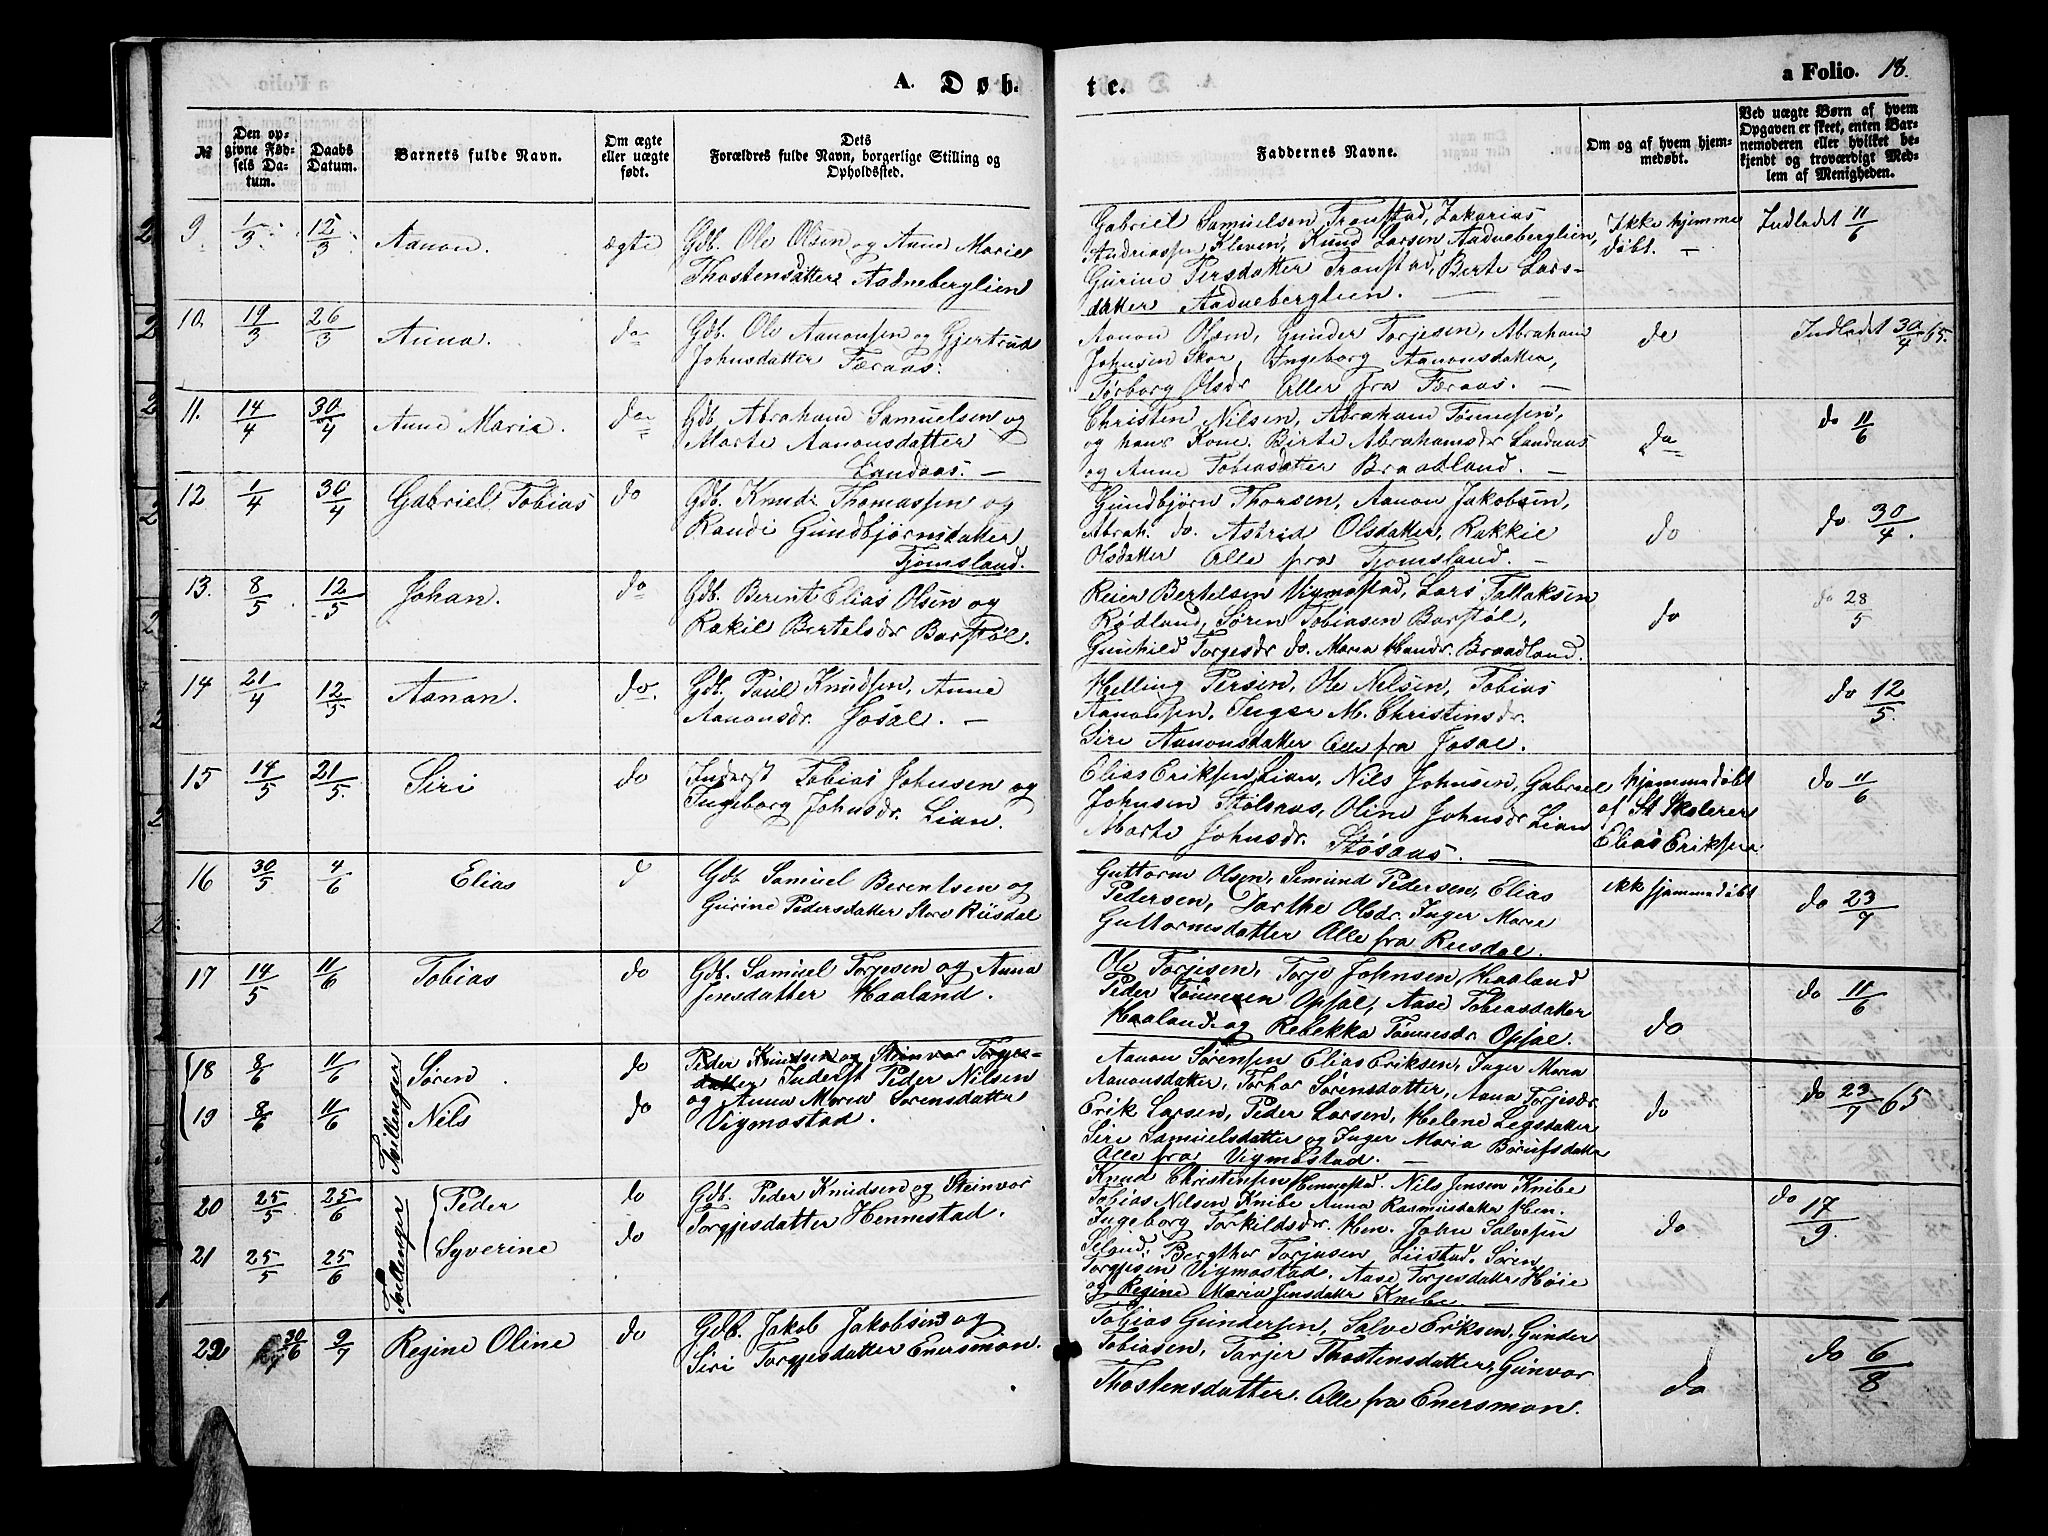 A. Døb-
te.
a Folio. 18.
№
Den op-
givne Fød-
sels Da-
tum.
Daabs
Datum.
Barnets fulde Navn.
Om ægte
eller uægte
født.
Dets
Forældres fulde Navn, borgerlige Stilling og
Opholdssted.
Faddernes Navne.
Om og af hvem hjem-
medøbt.
Ved uægte Børn af hvem
Opgaven er skeet, enten Bar-
nemoderen eller hvilket be-
kjendt og troværdigt Med-
lem af Menigheden.
9. 1/3. 12/3. Aanon. ægte
Gdb. Ole Olsen og Anne Marie
Thostensdatter Aadneberglien
Gabriel Samuelsen Tronstad, Zakarias
Andreassen Kleven, Knud Larsen Aadneberglien,
Gurine Persdatter Tronstad, Berte Lars-
datter Aadneberglien. —
Ikke hjemme
døbt. —
Indledet 11/6
10. 19/3 26/3 Anna. do
Gdb. Ole Aanonsen og Gjertrud
Johnsdatter Færaas.
Aanon Olsen, Gunder Torjesen, Abraham
Johnsen Skor, Ingeborg Aanonsdatter,
Torborg Olsdr Aller fra Færaas. —
do
Indledet 30/4 65.
11. 14/4 30/4 Anne Marie. do
Gdb. Abraham Samuelsen og
Marte Aanonsdatter
Landaas. —
Christen Nilsen, Abraham Tønnesen,
og hans Kone Birte Abrahamsdr Landaas
og Anne Tobiasdatter Braadland. —
do
do 11/6
12 1/4 30/4 Gabriel Tobias do
Gdb. Knud Thomassen og
Randi Gundbjørnsdatter
Tjomsland.
Gundbjørn Thorsen, Aanon Jakobsen,
Abrah. do. Astrid Olsdatter, Rakkie
Olsdatter Alle fra Tjomsland. —
do
do 30/4.
13. 8/5 12/5 Johan. do
Gdb. Berent Elias Olsen og
Rakil Bertelsdr Barstøl.
Reier Bertelsen Vigmostad, Lars Tallaksen
Rødland, Søren Tobiasen Barstøl,
Gunhild Torgesdr do. Maria Hansdr. Braadland.
do
do 28/5
14 21/4 12/5 Aanon. do.
Gdb. Paul Knudsen, Anne
Aanonsdr. Josal. —
Helling Persen, Ole Nilsen, Tobias
Aanonsen, Inger M. Christensdr.
Siri Aanonsdatter Alle fra Josal.
do 12/5.
15 14/5 21/5. Siri do
Inderst Tobias Johnsen og
Ingeborg Johnsdr. Lian.
Elias Eriksen Lian, Nils Johnsen, Gabriel
Johnsen Stølsaas, Oline Johnsdr Lian
Marte Johnsdr. Støsaas. —
hjemmedøbt
af St Skolerer
Elias Eriksen
do 11/6
16 30/5 4/6 Elias d
Gdb Samuel Berentsen og
Gurine Pedersdatter Store Riisdal
Guttorm Olsen, Semund Pedersen, Elias
Pedersen, Dorthe Olsdr. Inger Marie
Guttormsdatter Alle fra Rusdal.
ikke hjemmedøbt
do 23/7
17 14/5 11/6 Tobias do
Gdb. Samuel Torjesen og Anna
Jensdatter Haaland.
Ole Torjesen, Torje Johnsen, Haaland
Peder Tønnesen Opsal, Aase Tobiasdatter
Haaland og Rebekka Tønnesdr Opsal.
do
do 11/6
18 8/6 11/6 Søren. do
19 8/6 11/6 Nils do
Tvillenger
Peder Knudsen og Steinvor Torjes-
datter Inderst Peder Nilsen
og Anna Maria Sørensdatter
Vigmostad.
Aanon Sørensen Elias Eriksen, Inger Maria
Aanonsdatter, Torbor Sørensdatter, Aana Torjesdr.
Erik Larsen, Peder Larsen, Helene Legsdatter
Siri Samuelsdatter og Inger Maria Børufsdatter
Alle fra Vigmostad. —
do
do 23/7 65
20 25/5 25/6 Peder do
21 25/5 25/6 Syverine do
Tvillenger
Gdb. Peder Knudsen og Steinvor
Torgjesdatter Hennestad.
Knud Christensen Hennestad. Nils Jensen Knibe
Tobias Nilsen Knibe Anna Rasmusdatter Hen.
Ingeborg Torkildsdr. Hen. John Salvesen
Seland, Bergthor Torjusen Liistad. Søren
Torgjesen Vigmostad. Aase Torjesdatter Høie
og Regine Maria Jensdatter Knibe. —
do
do 17/9.
22 30/6 9/7 Regine Oline do
Gdb. Jakob Jakobsen og
Siri Torgjesdatter Enersmon.
Tobias Gundersen, Salve Eriksen, Gunder
Tobiasen, Tarjer Thostensdatter, Gunvor
Thostensdatter. Alle fra Enersmon.
do
do 6/8